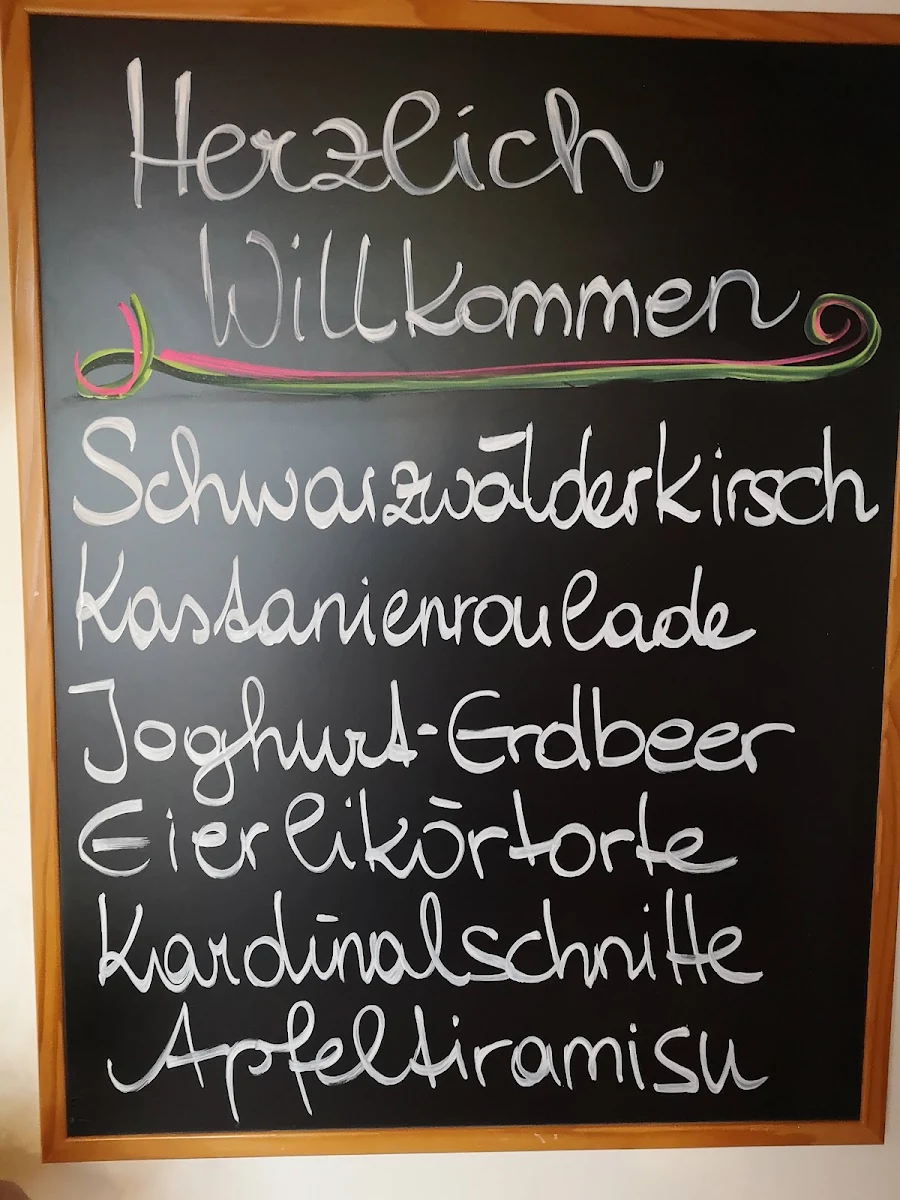 Herzlich
Willkommen
Schwarzwälderkirsch
Kastanienroulade
Joghurt-Erdbeer
Eierlikörtorte
Kardinalschnitte
Apfeltiramisu